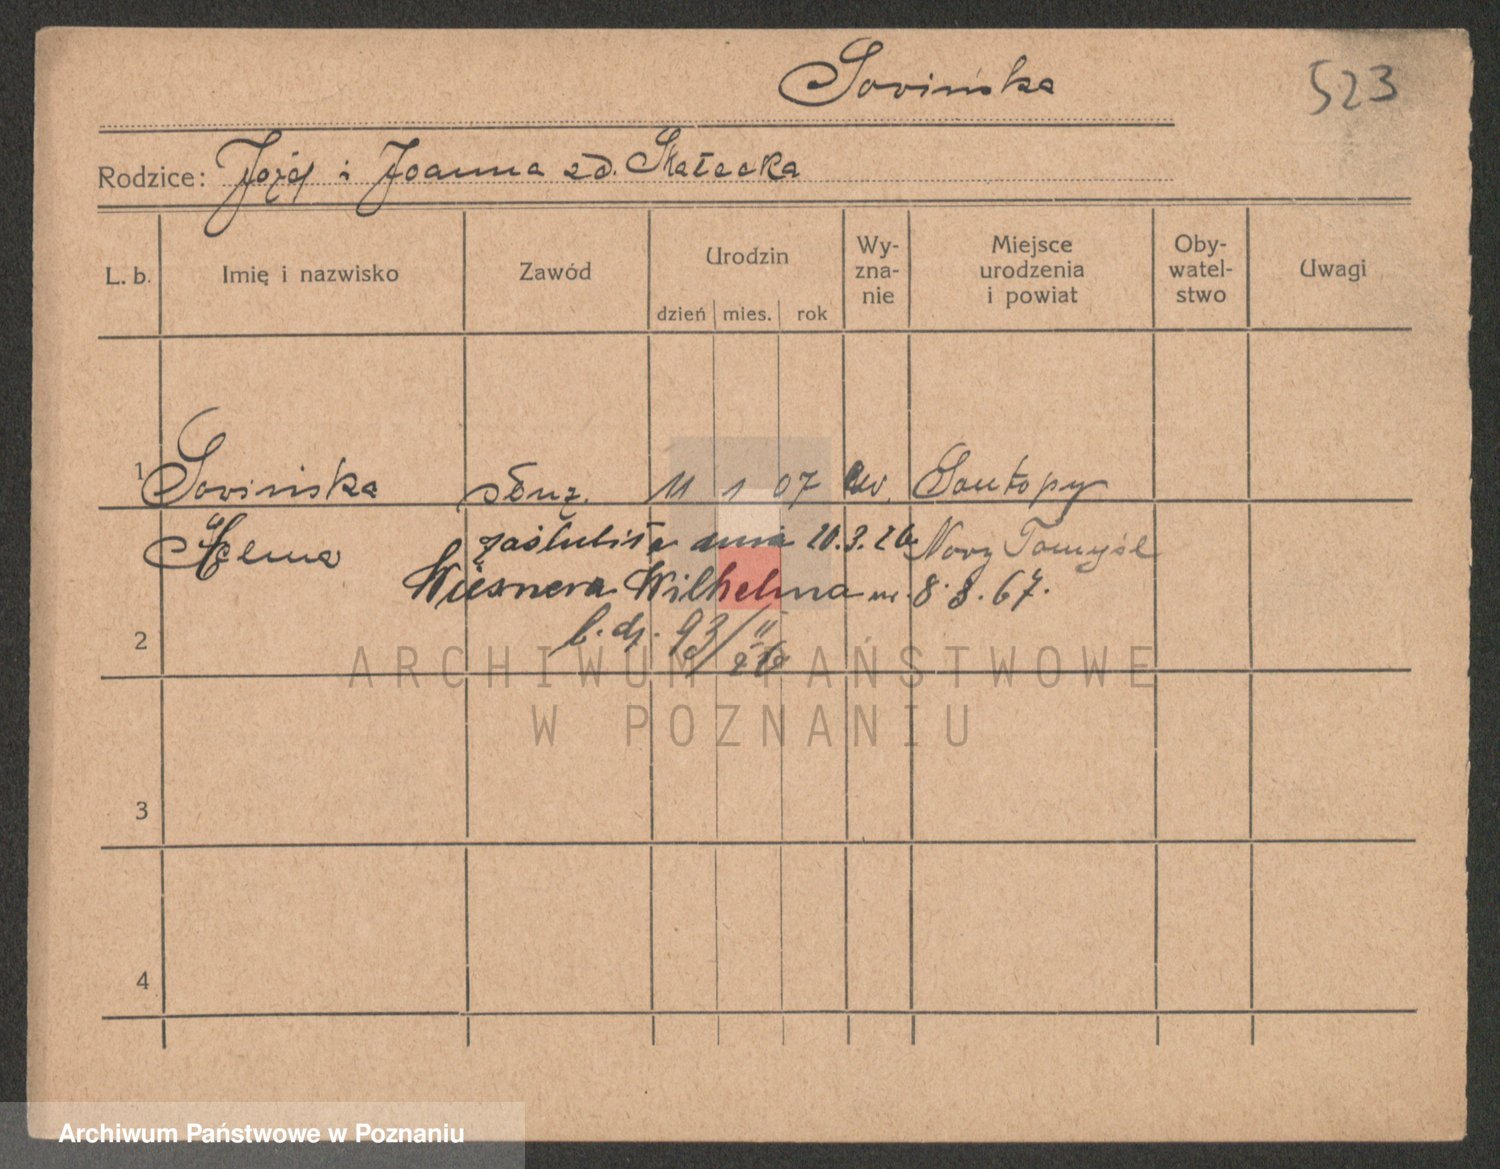 Sovińska
523
Rodzice: Józef i Joanna zd. Skałecka
L. b.
Imię i nazwisko
Zawód
Urodzin
dzień
mies.
rok
Wy-
zna-
nie
Miejsce
urodzenia
i powiat
Oby-
watel-
stwo
Uwagi
1 Sovińska służ. 11 1 07 ew. Sontopy
Elma Nowy Tomyśl
zaślubiła dnia 20.3.26
Wiesnera Wilhelma ur. 8.8.67.
2
l. dz. 93/II 26
3
4
ARCHIWUM PAŃSTWOWE
W POZNANIU
Archiwum Państwowe w Poznaniu